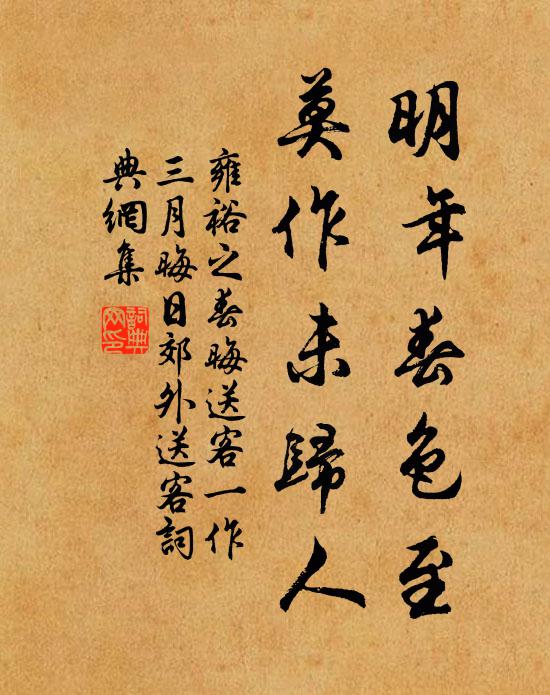 明年春色至
莫作未歸人
雍裕之春晦送客一作
三月晦日郊外送客詞
典網集
詞典網印